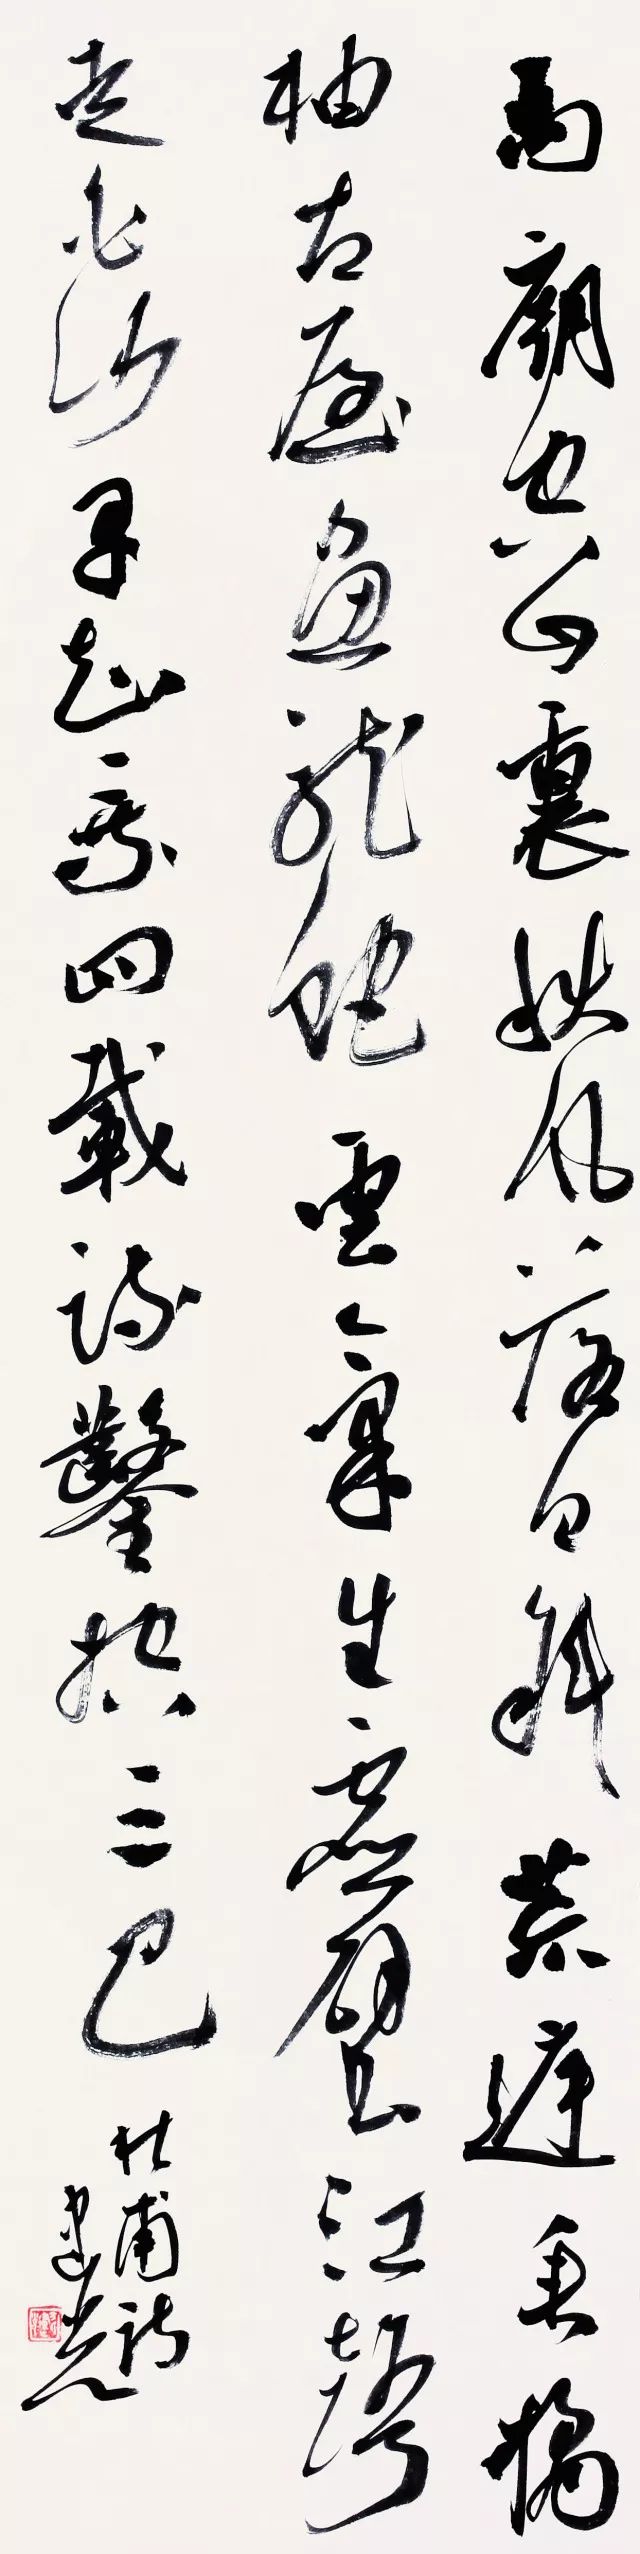 禹廟空山裏秋風落日斜荒庭垂橘
柚古屋畫龍蛇雲氣生虛壁江聲
走白沙早知乘四載疏鑿控三巴
杜甫詩
建光